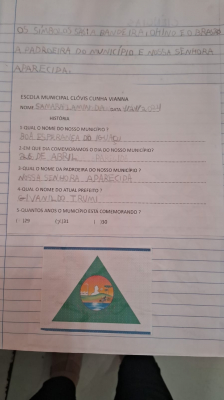 OS SIMBOLOS SÃO A BANDEIRA O HINO E O BRASÃO
A PADROEIRA DO MUNICÍPIO É NOSSA SENHORA
APARECIDA.
ESCOLA MUNICIPAL CLÓVIS CUNHA VIANNA
NOME: DATA:
HISTÓRIA
1-QUAL O NOME DO NOSSO MUNICÍPIO ?
BOA ESPERANÇA DO IGUAÇU
2-EM QUE DIA COMEMORAMOS O DIA DO NOSSO MUNICÍPIO?
DE ABRIL
3-QUAL O NOME DA PADROEIRA DO NOSSO MUNICÍPIO
NOSSA SENHORA APARECIDA
4-QUAL O NOME DO ATUAL PREFEITO ?
GIVANILDO TRUMI
5-QUANTOS ANOS O MUNICÍPIO ESTÁ COMEMORANDO ?